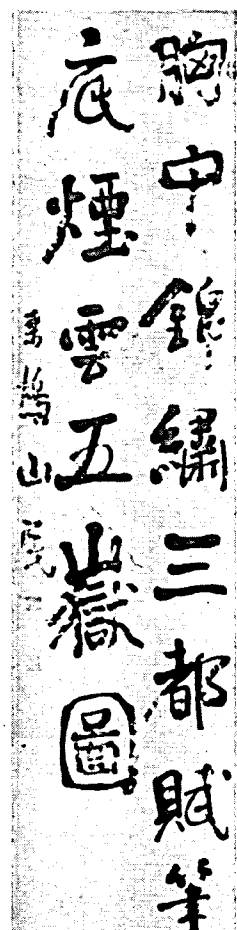 胸中錦繡三都賦筆
底煙雲五嶽圖